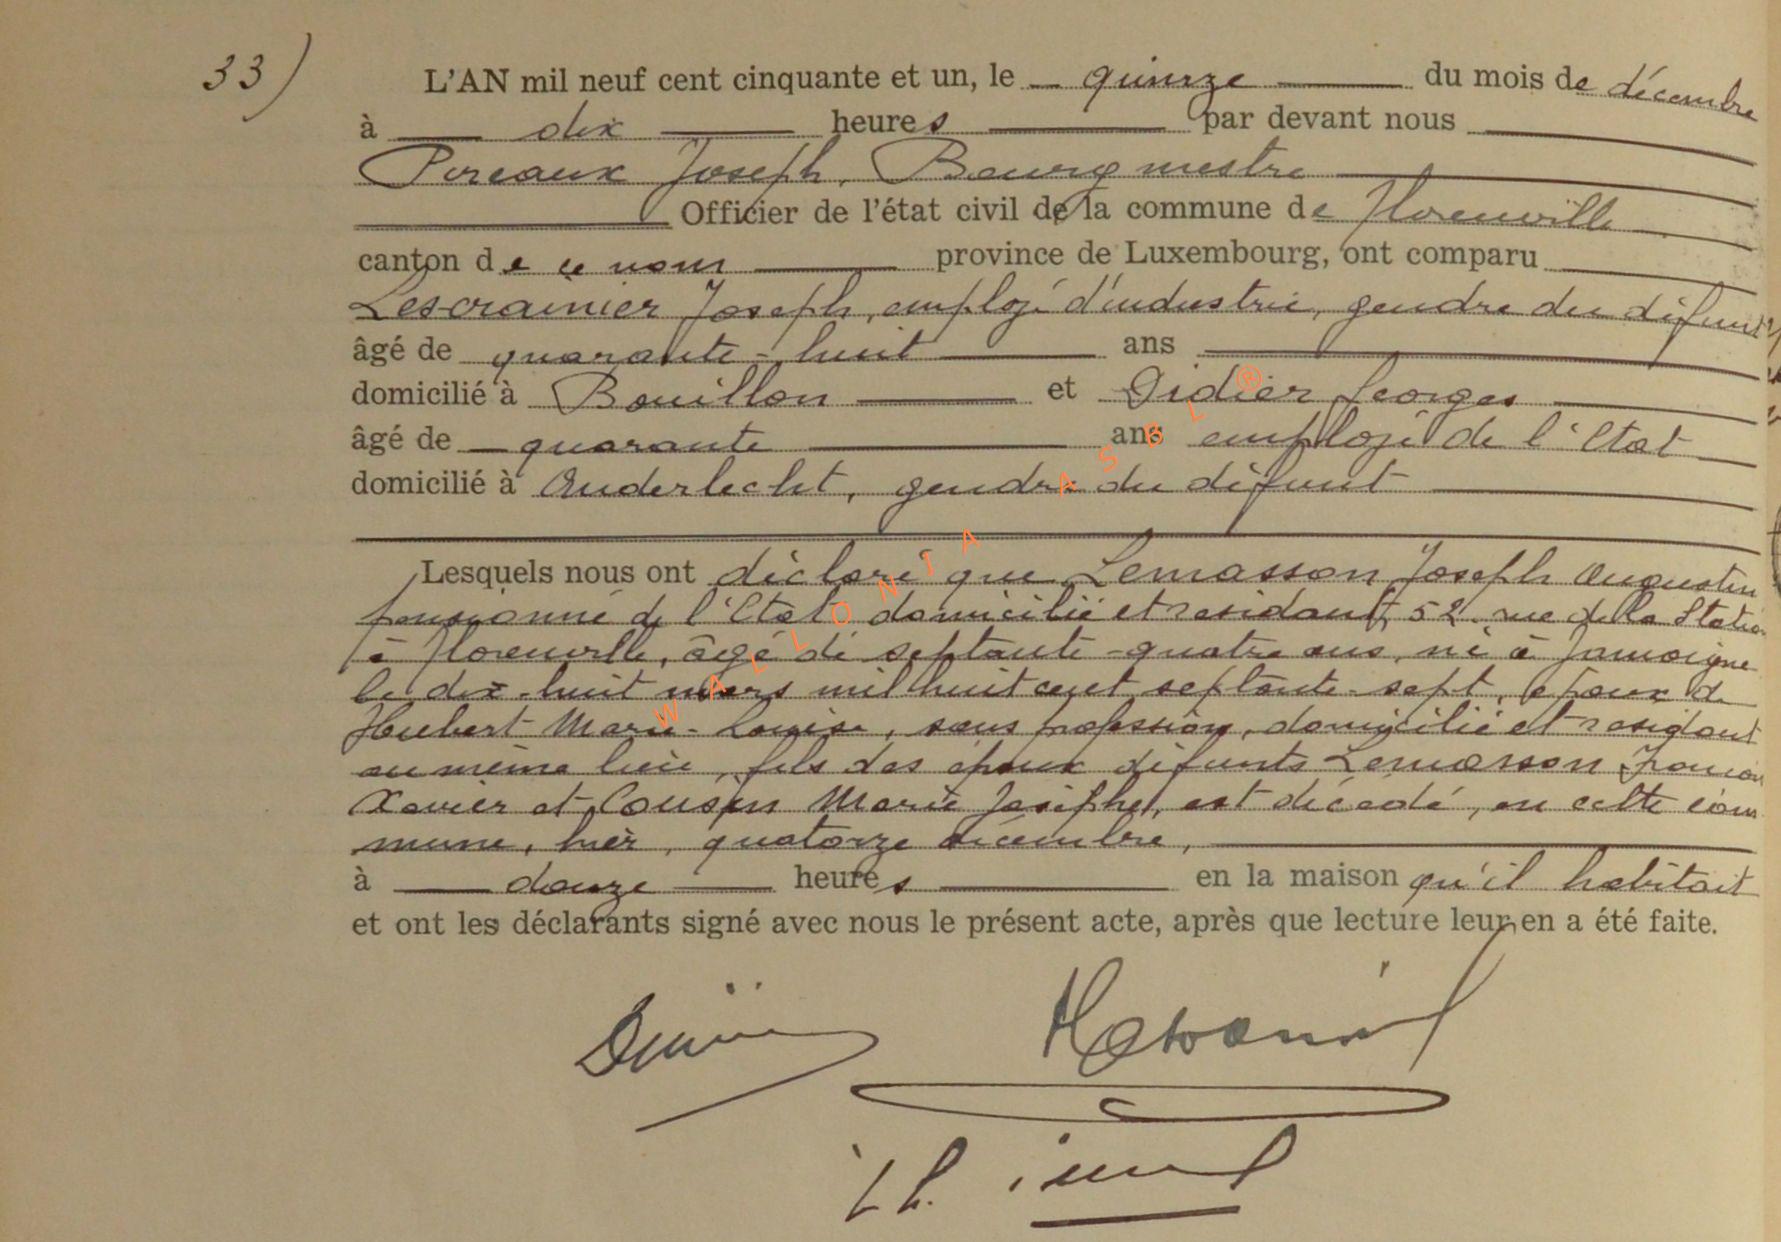 33)
L'AN mil neuf cent cinquante et un, le quinze du mois de décembre
à dix heures par devant nous
Pireaux Joseph, Bourgmestre
Officier de l'état civil de la commune de Florenville
canton de ce nom province de Luxembourg, ont comparu
Lescrainier Joseph, employé d'industrie, gendre du défunt
âgé de quarante-huit ans
domicilié à Bouillon et Didier Georges
âgé de quarante ans employé de l'Etat
domicilié à Anderlecht, gendre du défunt
Lesquels nous ont déclaré que Lemasson Joseph Augustin
pensionné de l'Etat domicilié et residant, 52 rue de la Station
à Florenville, âgé de septante-quatre ans, né à Jamoigne
le dix-huit mars mil huit cent septante-sept, époux de
Hubert Marie-Louise, sans profession, domicilié et residant
au même lieu, fils des époux défunts Lemasson François
Xavier et Cousin Marie Josèphe, est décédé, en cette com
mune, hier, quatorze décembre,
à douze heures en la maison qu'il habitait
et ont les déclarants signé avec nous le présent acte, après que lecture leur en a été faite.
WALLONIA ASBL ®